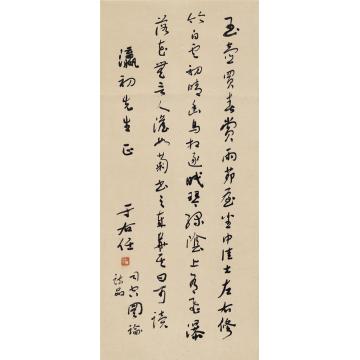 玉壺買春賞雨茆屋坐中佳士左右修
竹白雲初晴幽鳥相逐眠琴綠陰上有飛瀑
落花無言人澹如菊書之歲華其曰可讀
瀛初先生正
于右任
司空圖論
詩品